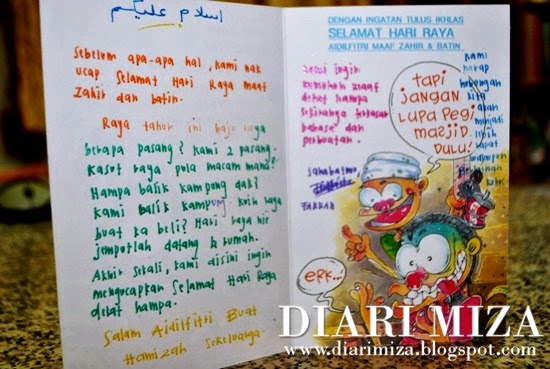 اسلام عليكم
Sebelum apa-apa hal, kami nak
ucap Selamat Hari Raya maaf
zahir dan batin.
Raya tahun ini baju raya
berapa pasang? Kami 2 pasang.
Kasut raya pula macam mana?
Hampa balik kampong dak?
Kami balik kampung. Kuih raya
buat ka beli? Hari raya nir
jemputlah datang k rumah.
Akhir sekali, kami disini ingin
mengucapkan Selamat Hari Raya
dekat hampa.
Salam Aidilfitri Buat
Hamizah Sekeluarga.
DENGAN INGATAN TULUS IKHLAS
SELAMAT HARI RAYA
AIDILFITRI MAAF ZAHIR & BATIN
ingin
maaf
dekat hampa
sekiranya terkasar
bahasa dan
perbuatan.
Sahabatmu,
FARRAH
kami
harap
hubungan
kita
akan
menjadi
lebih
rapat
TAPI
JANGAN
LUPA PEGI
MASJID
DULU!
ERK...
DIARI MIZA
www.diarimiza.blogspot.com